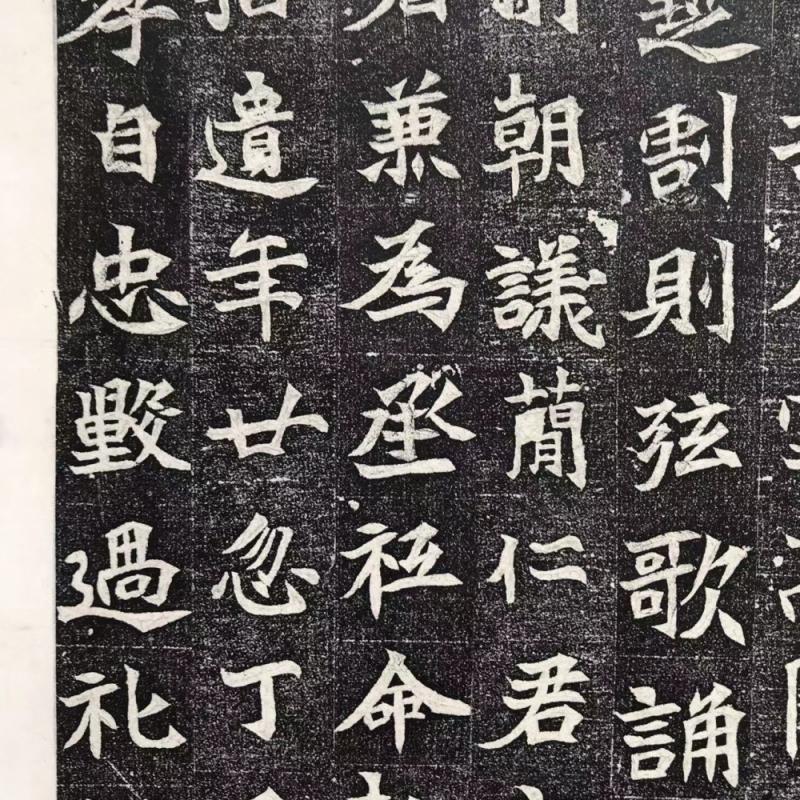 割則弦歌誦
朝議簡仁君
兼為丞祗命
遺年廿忽丁
孝自忠毀過礼